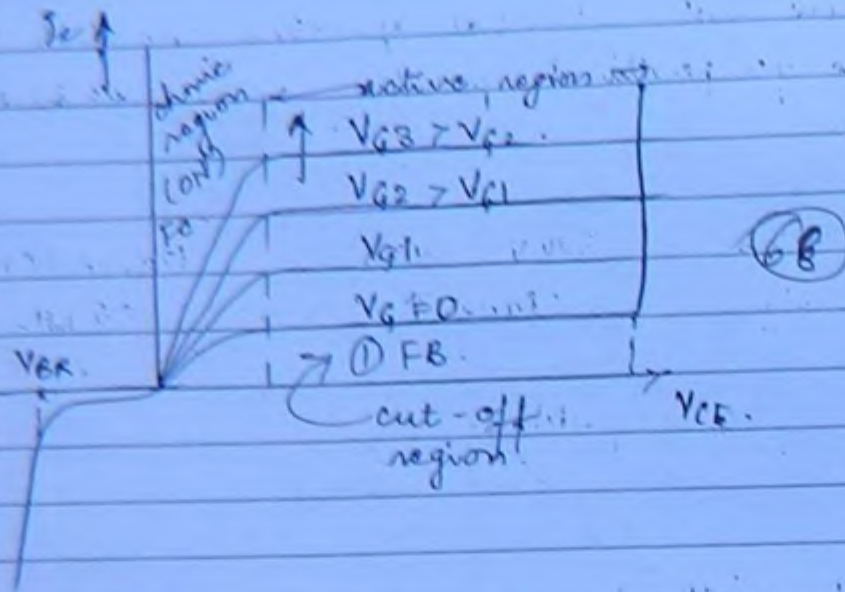 Ic
ohmic region (ON)
active region
VG3 > VG2
VG2 > VG1
VG1
VG = 0
68
VBR.
① FB.
cut-off
region
VCE.